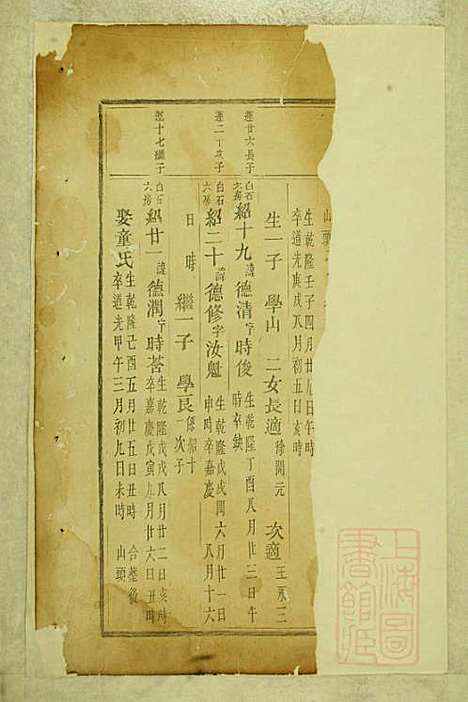 山頭
生乾隆壬子四月廿九日午時
卒道光庚戌八月初五日亥時
生一子 學山 二女長適 徐開元 次適 王永三
遷廿六長子
白石
六房
紹十九 諱 德清 字 時俊 生乾隆丁酉八月廿三日午
時卒缺
遷二十次子
白石
六房
紹二十 諱 德修 字 汝魁 生乾隆戊戌閏六月廿一日
申時卒嘉慶 八月十六
日時 繼一子 學艮 係紹十
一次子
遷十七繼子
白石
六房
紹廿一 諱 德潤 字 時茖 生乾隆戊戌八月廿二日亥時
卒嘉慶戊寅九月廿六日丑時
娶童氏 生乾隆己酉五月廿五日丑時 合墓後
卒道光甲午三月初九日未時 山頭
上海圖
書館藏